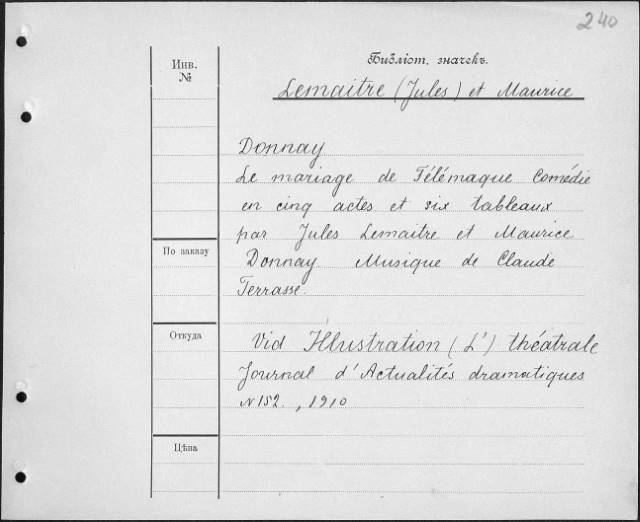 240
Инв.
№
Библіот. значекъ.
Lemaitre (Jules) et Maurice
Donnay
Le mariage de Télémaque Comédie
en cinq actes et six tableaux
par Jules Lemaitre et Maurice
По заказу
Donnay Musique de Claude
Terrasse.
Откуда
Vid Illustration (L') théâtrale
Journal d'Actualités dramatiques
N 152., 1910
Цѣна